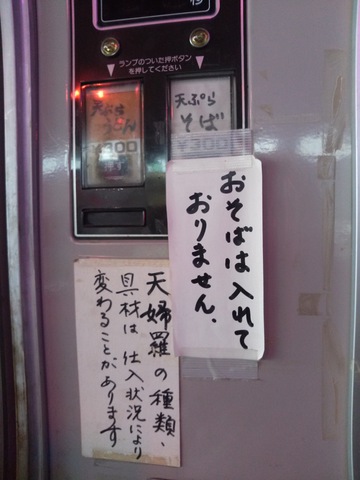 ランプのついた押ボタン
を押してください
天ぷら
うどん
¥300
天ぷら
そば
¥300
おそばは入れて
おりません.
天婦羅の種類、
具材は仕入状況により
変わることがあります